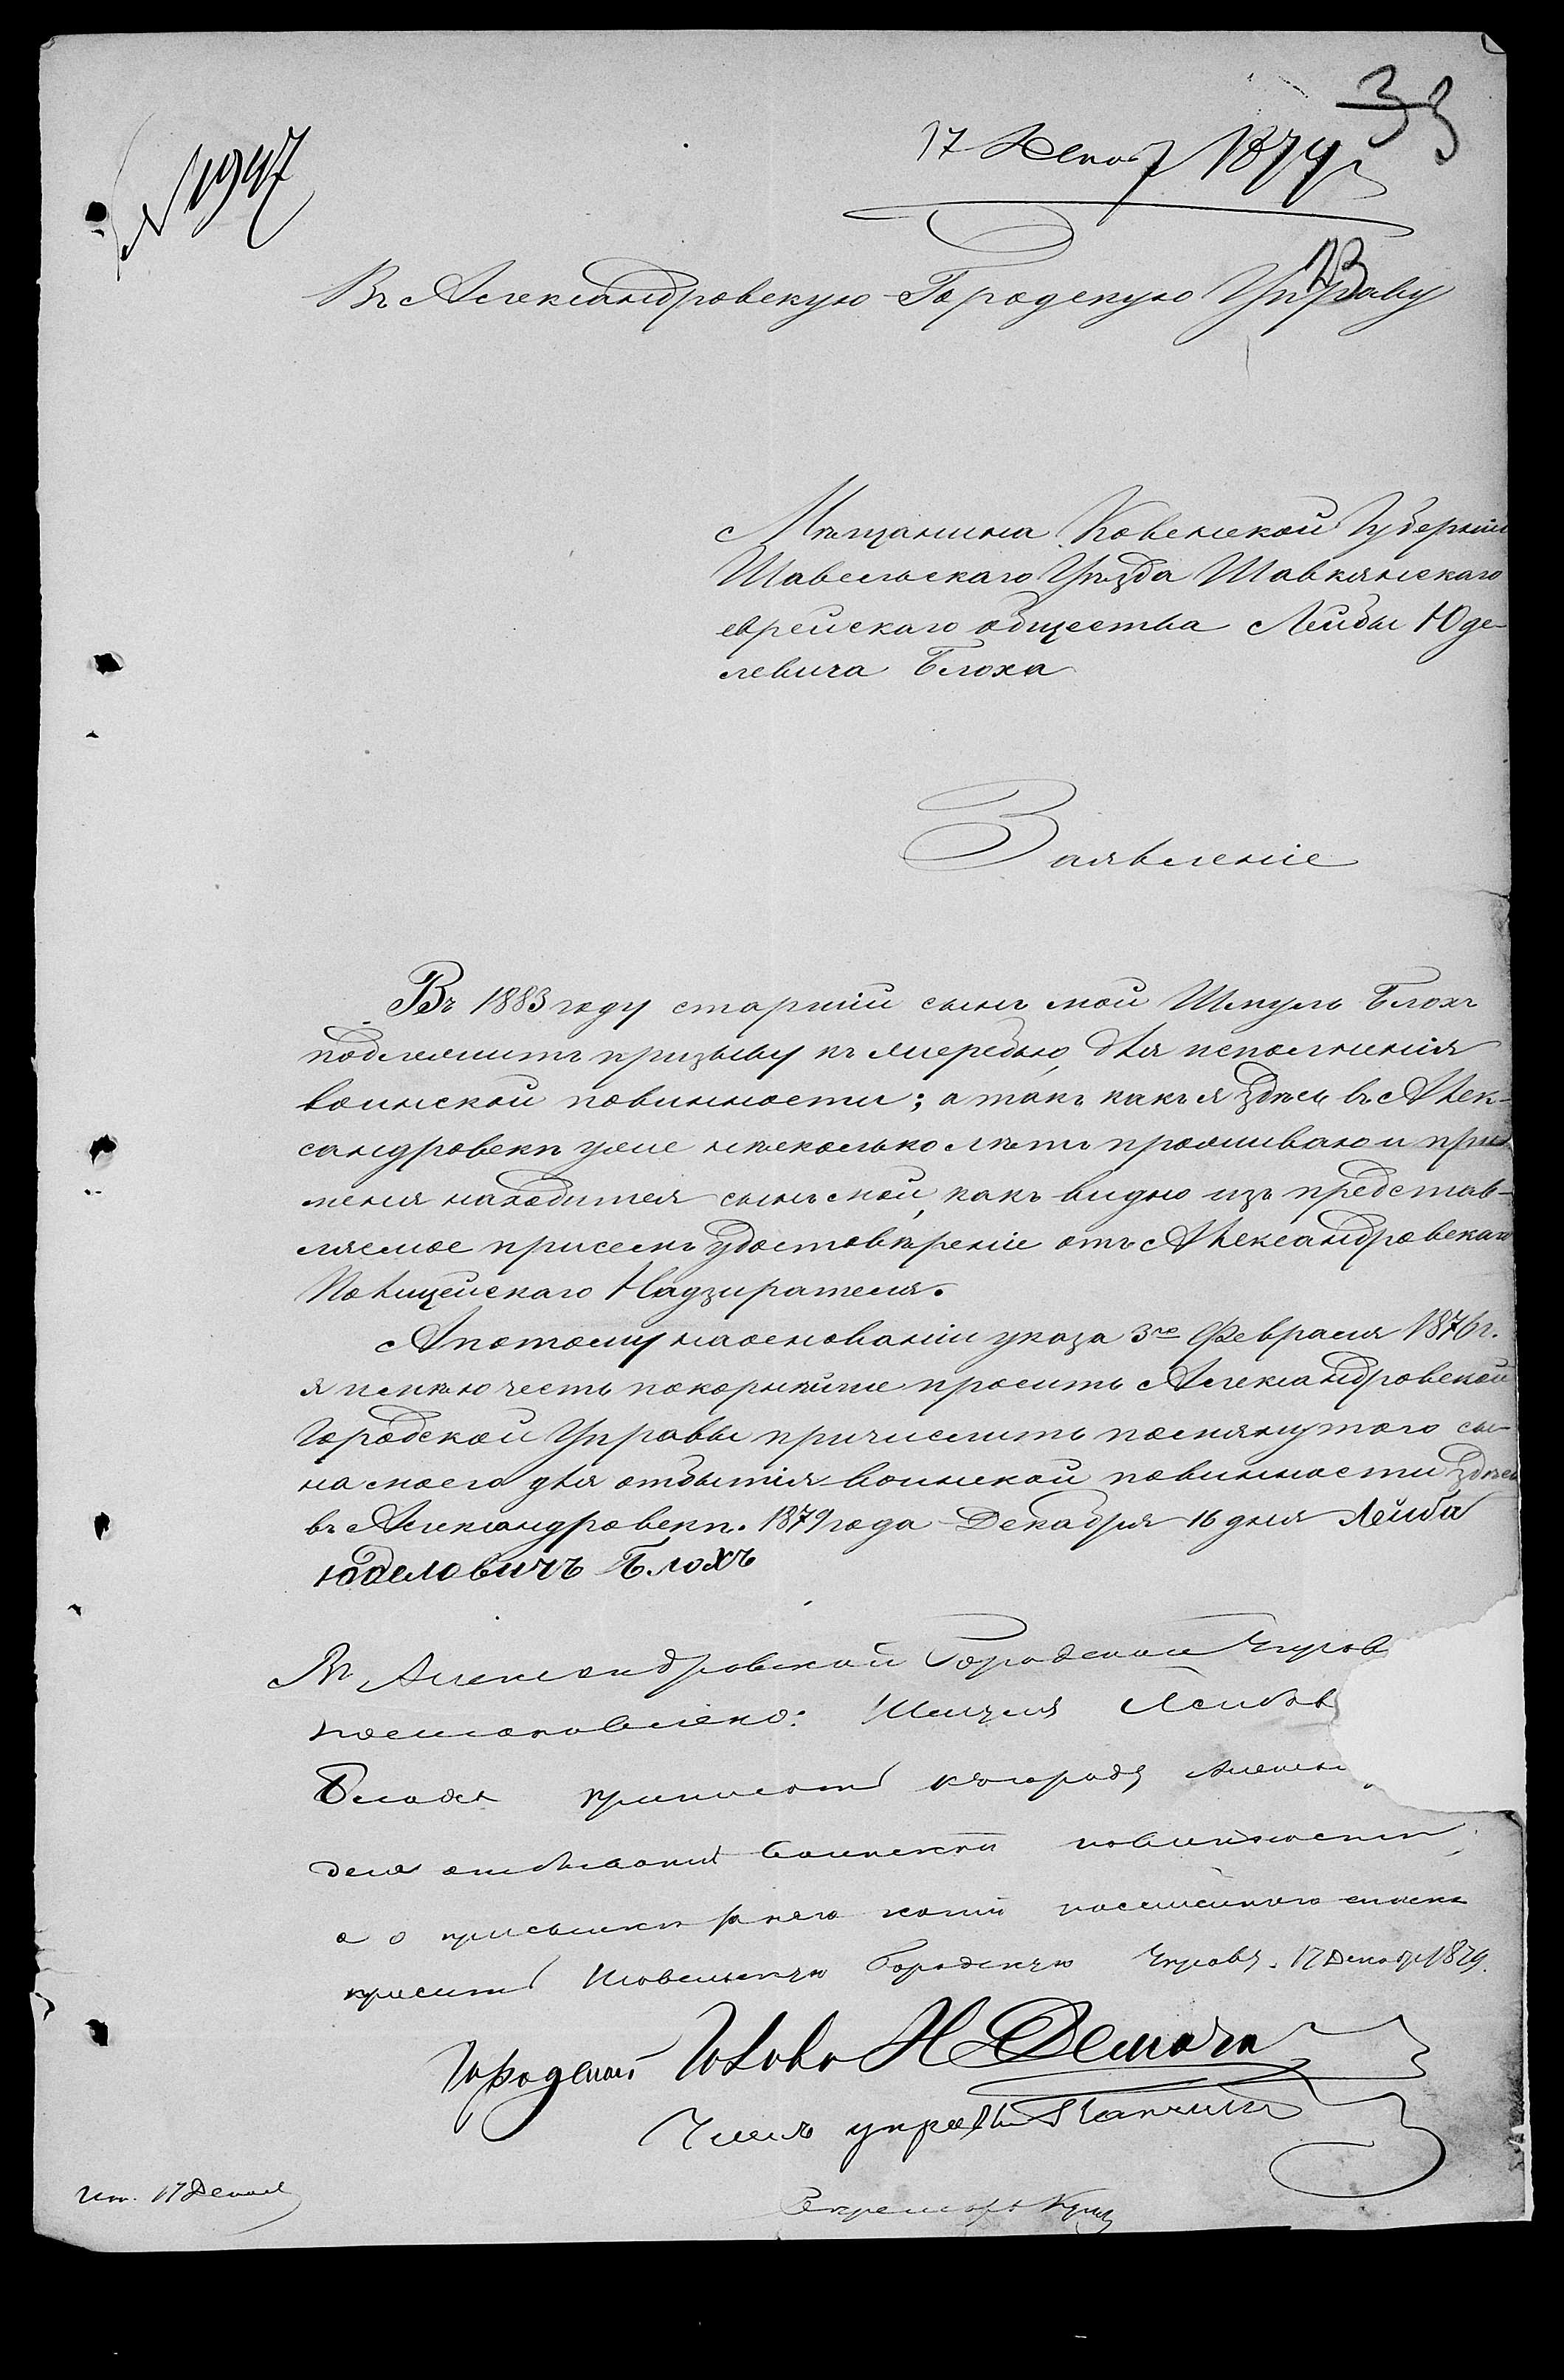 33
№ 1947
17 Декаб 1879 г
23
Въ Александровскую Городскую Управу
Мѣщанина Ковенской Губерніи
Шавельскаго Уѣзда Шавкянскаго
еврейскаго общества Лейбы Юде-
левича Блоха
Заявленіе
Въ 1883 году старшій сынъ мой Шмуль Блохъ
подлежитъ призыву къ жеребью, для исполненія
воинской повинности; а такъ какъ я здѣсь въ Алек-
сандровскѣ уже нѣсколько лѣтъ проживаю и при
меня находится сынъ мой, какъ видно изъ представ-
ляемое присемъ удостовѣреніе отъ Александровскаго
Полицейскаго Надзирателя.
А потому на основаніи указа 3го Февраля 1876 г.
я имѣю честь покорнѣйше просить Александровской
Городской Управы причислить помянутого сы-
на моего для отбытія воинской повинности здѣсь
въ Александровскѣ. 1879 года Декабря 16 дня Лейба
Юделовичъ Блохъ
Въ Александровской Городской Управ
постановлено: Шмуля Лейбов
Блоха къ городу
для отбыванія воинской повинности,
а о присылкѣ на него копіи посемейного списка
просить Шавельскую Городскую Управу. 17 Декабр 1879.
Городской Голова Н Демоча
Членъ управы
Секретарь
Исп. 17 Декаб